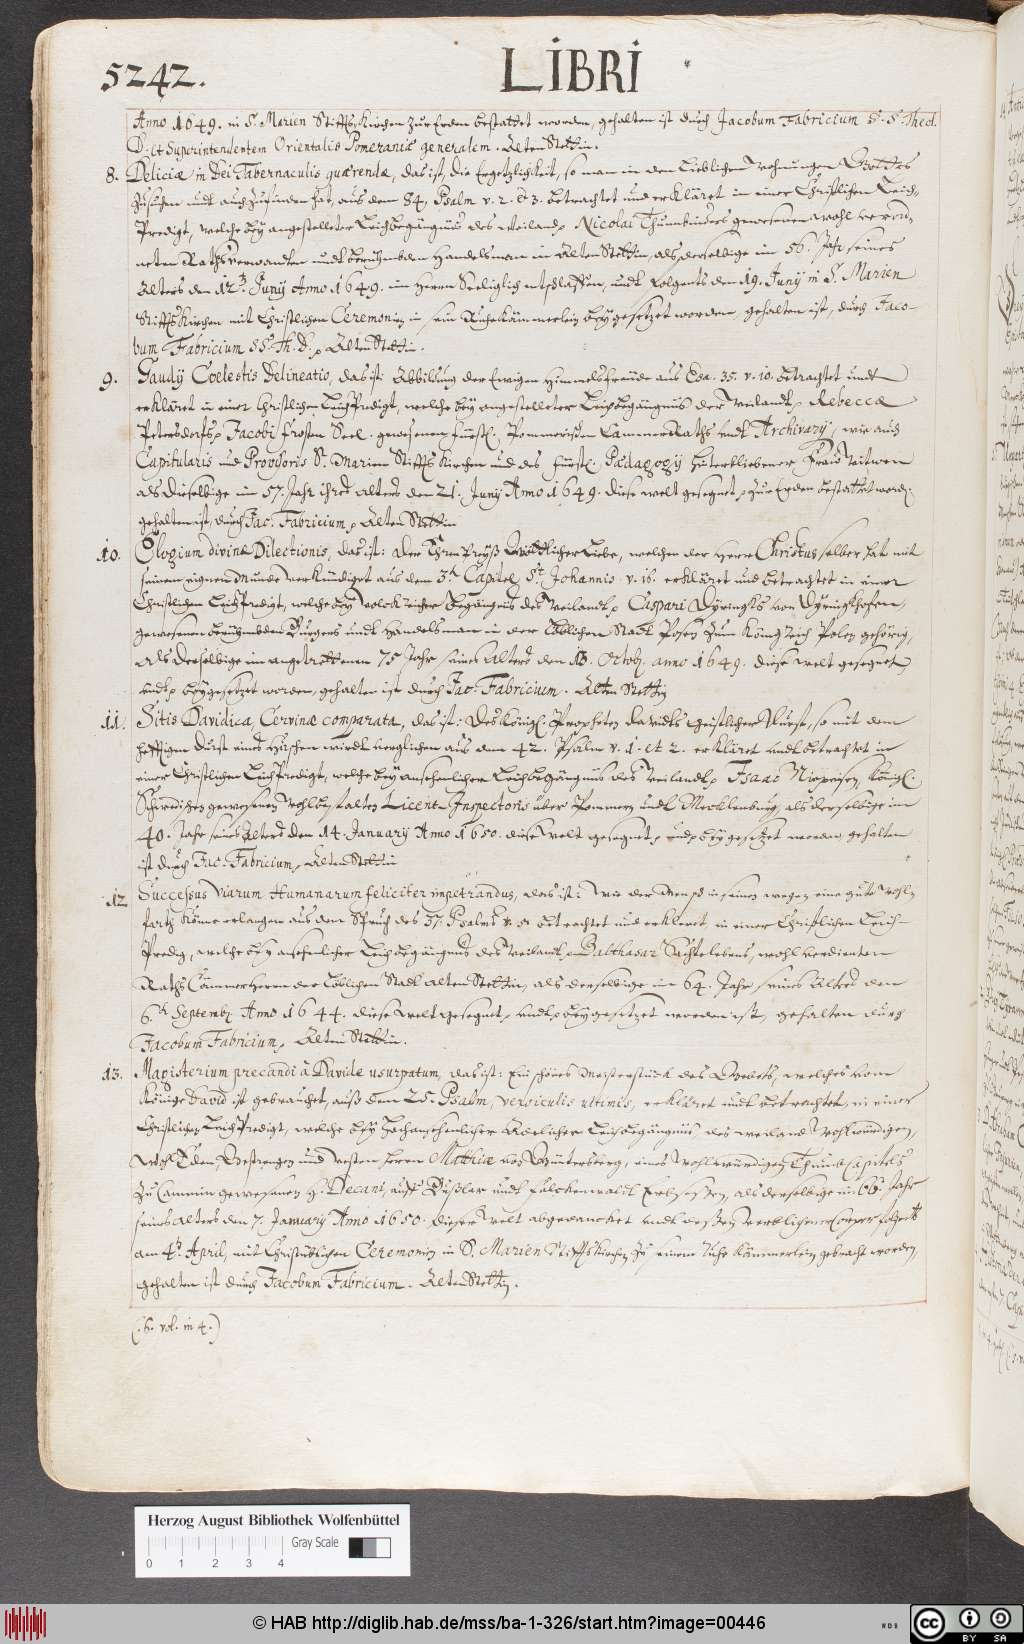 5242.
LIBRI
Anno 1649. in S. Marien Stiffts Kirchen zur Erden bestattet worden, gehalten ist durch Jacobum Fabricium S. S. Theol.
D. et Superintendentem Orientalis Pomeraniæ generalem. Alten Stettin.
8. Deliciæ in Dei Tabernaculis quærendæ, das ist, die Ergetzlichkeit, so man in den Lieblichen Wohnungen Gottes
zusuchen undt auch zufinden hat, aus dem 84. Psalm v. 2. et 3. betrachtet und erkläret in einer Christlichen Leich-
Predigt, welche bey angestelleter Leichbegängnüs des Weiland Nicolai gewesenen wohl verord-
neten Raths Verwandten undt berühmbden Handelsman in Alten Stettin, als derselbige im 56. Jahr seines
Alters den 12. Junij Anno 1649. im Herrn Seeliglich entschlaffen, undt folgents den 19. Junij in S. Marien
Stiffts Kirchen mit Christlichen Ceremonien in sein Ruhekämmerlein beygesetzet worden, gehalten ist, durch Jaco-
bum Fabricium SS. Th. D. Alten Stettin.
9. Gaudij Coelestis Delineatio, das ist Abbildung der Ewigen Himmelsfreude aus Esa. 35. v. 10. betrachtet undt
erkläret in einer Christlichen LeichPredigt, welche bey angestelleter Leichbegängnüs der Weilandt Rebeccæ
Petersdorfs, Jacobi Frosten Seel. gewesenen Fürstl. Pommerischen CammerRaths undt Archivarij, wie auch
Capitularis und Provisoris S. Marien Stiffts Kirchen und des Fürstl. Pædagogij hinterbliebener Fraw Witwen
als dieselbige im 57. Jahr ihres Alters den 21. Junij Anno 1649. diese welt gesegnet, zur Erden bestattet word.
gehalten ist, durch Jac. Fabricium, Alten Stettin
10. Elogium divinæ Dilectionis, das ist: Der Göttlicher Liebe, welchen der Herr Christus selber hat mit
seinem eignen Munde verkündiget aus dem 3. Capitel St. Johannis v. 16. erkläret und betrachtet in einer
Christlichen LeichPredigt, welche bey Volckreicher Begängnüs des Weilandt Caspari von
gewesenen berühmbden Burgers undt Handelsman in der Löblichen Stadt Posen Zum Königreich Polen gehörig,
als derselbige im angetrettenem 75 Jahr seines Alters den 13. Octob. anno 1649. diese welt gesegnet
undt beygesetzet worden, gehalten ist durch Jac. Fabricium. Alten Stettin
11. Sitis Davidica, Cervinæ comparata, das ist: Des Königl. Propheten Davidts geistlicher Durst, so mit dem
hefftigen Durst eines Hirschen wirdt verglichen aus dem 42. Psalm v. 1. et 2. erkläret undt betrachtet in
einer Christlichen LeichPredigt, welche bey ansehnlicher Leichbegängnüs des Weilandt Isaac Königl.
Schwedischen gewesenen wohlbestalten Licent-Inspectoris über Pommern undt Mecklenburg, als derselbige im
40. Jahr seines Alters den 14. Januarij Anno 1650. diese welt gesegnet, undt beygesetzet worden gehalten
ist durch Jac. Fabricium, Alten Stettin
12 Successus Viarum Humanarum feliciter impetrandus, das ist: wie der Mensch in seinen wegen eine gute wohl-
farth könne erlangen aus dem Spruch des 37. Psalms v. 5. betrachtet und erkleret, in einer Christlichen Leich-
Predig, welche bey ansehnlicher Leichbegängnüs des Weilandt Balthasar Sachtelebens, wohl verdienten
Raths CämmerHerren der Löblichen Stadt Alten Stettin, als derselbige im 64. Jahr seines Alters den
6. Septemb. Anno 1644. diese Welt gesegnet, undt beygesetzet worden ist, gehalten durch
Jacobum Fabricium, Alten Stettin.
13. Magisterium precandi à Davide usurpatum, das ist: Ein schönes Meisterstück des Gebets, welches vom
Könige David ist gebrauchet, auß dem 25. Psalm, versiculis ultimis, erkläret undt betrachtet, in einer
Christlichen LeichPredigt, welche bey Hochansehenlicher Adelicher Leichbegängnüs des weiland WohlEhrwürdigen,
WohlEdlen, Gestrengen und Vesten Herrn Mathiæ von Güntersberg, eines wohlwürdigen ThumbCapitels
Zu Cammin gewesenen H. Decani, auff undt Falckenwaldt Erbsessen, als derselbige im 66. Jahr
seines Alters den 7. Januarij Anno 1650. dieser Welt abgedancket undt dessen verblichener Cörper folgents
am 4. April, mit Christüblichen Ceremonien in S. Marien StifftsKirchen Zu seinem Ruhe Kämmerlein gebracht worden,
gehalten ist durch Jacobum Fabricium. Alten Stettin.
(. h. vol. in 4.)
Herzog August Bibliothek Wolfenbüttel
Gray Scale
0 1 2 3 4
© HAB http://diglib.hab.de/mss/ba-1-326/start.htm?image=00446
WDB
cc BY SA